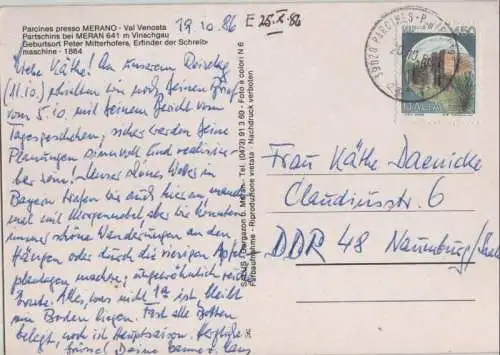 Parcines presso MERANO - Val Venosta
Partschins bei MERAN 641 m Vinschgau
Geburtsort Peter Mitterhofers, Erfinder der Schreib-
maschine - 1864
19.10.86
E 25.X.86
Liebe Käthe! An unserem Reisetag
(11.10.) erhielten wir noch Deinen Brief
vom 5.10. mit Deinem Bericht vom
Tagesgeschehen, sicher werden Deine
Planungen sinnvoll und realisier-
bar sein! Unser schönes Wetter in
Bayern trafen wir auch hier an, manch-
mal mit Morgennebel aber wir konnten
immer schöne Wanderungen an den
Hängen oder durch die riesigen Apfel-
plantagen machen, ungewöhnlich reiche
Alles, was nicht 1a ist, bleibt
am Boden liegen. Fast alle Betten
belegt, noch ist Hauptsaison. Herzliche
Grüsse! Deine
39020 PARCINES
450
ITALIA
Foto a colori N 6
Meran - Tel. (0473) 91 3 60
Farbaufnahme - Riproduzione vietata - Nachdruck verboten
Frau Käthe Daenicke
Claudiusstr. 6
DDR 48 Naumburg/Saale